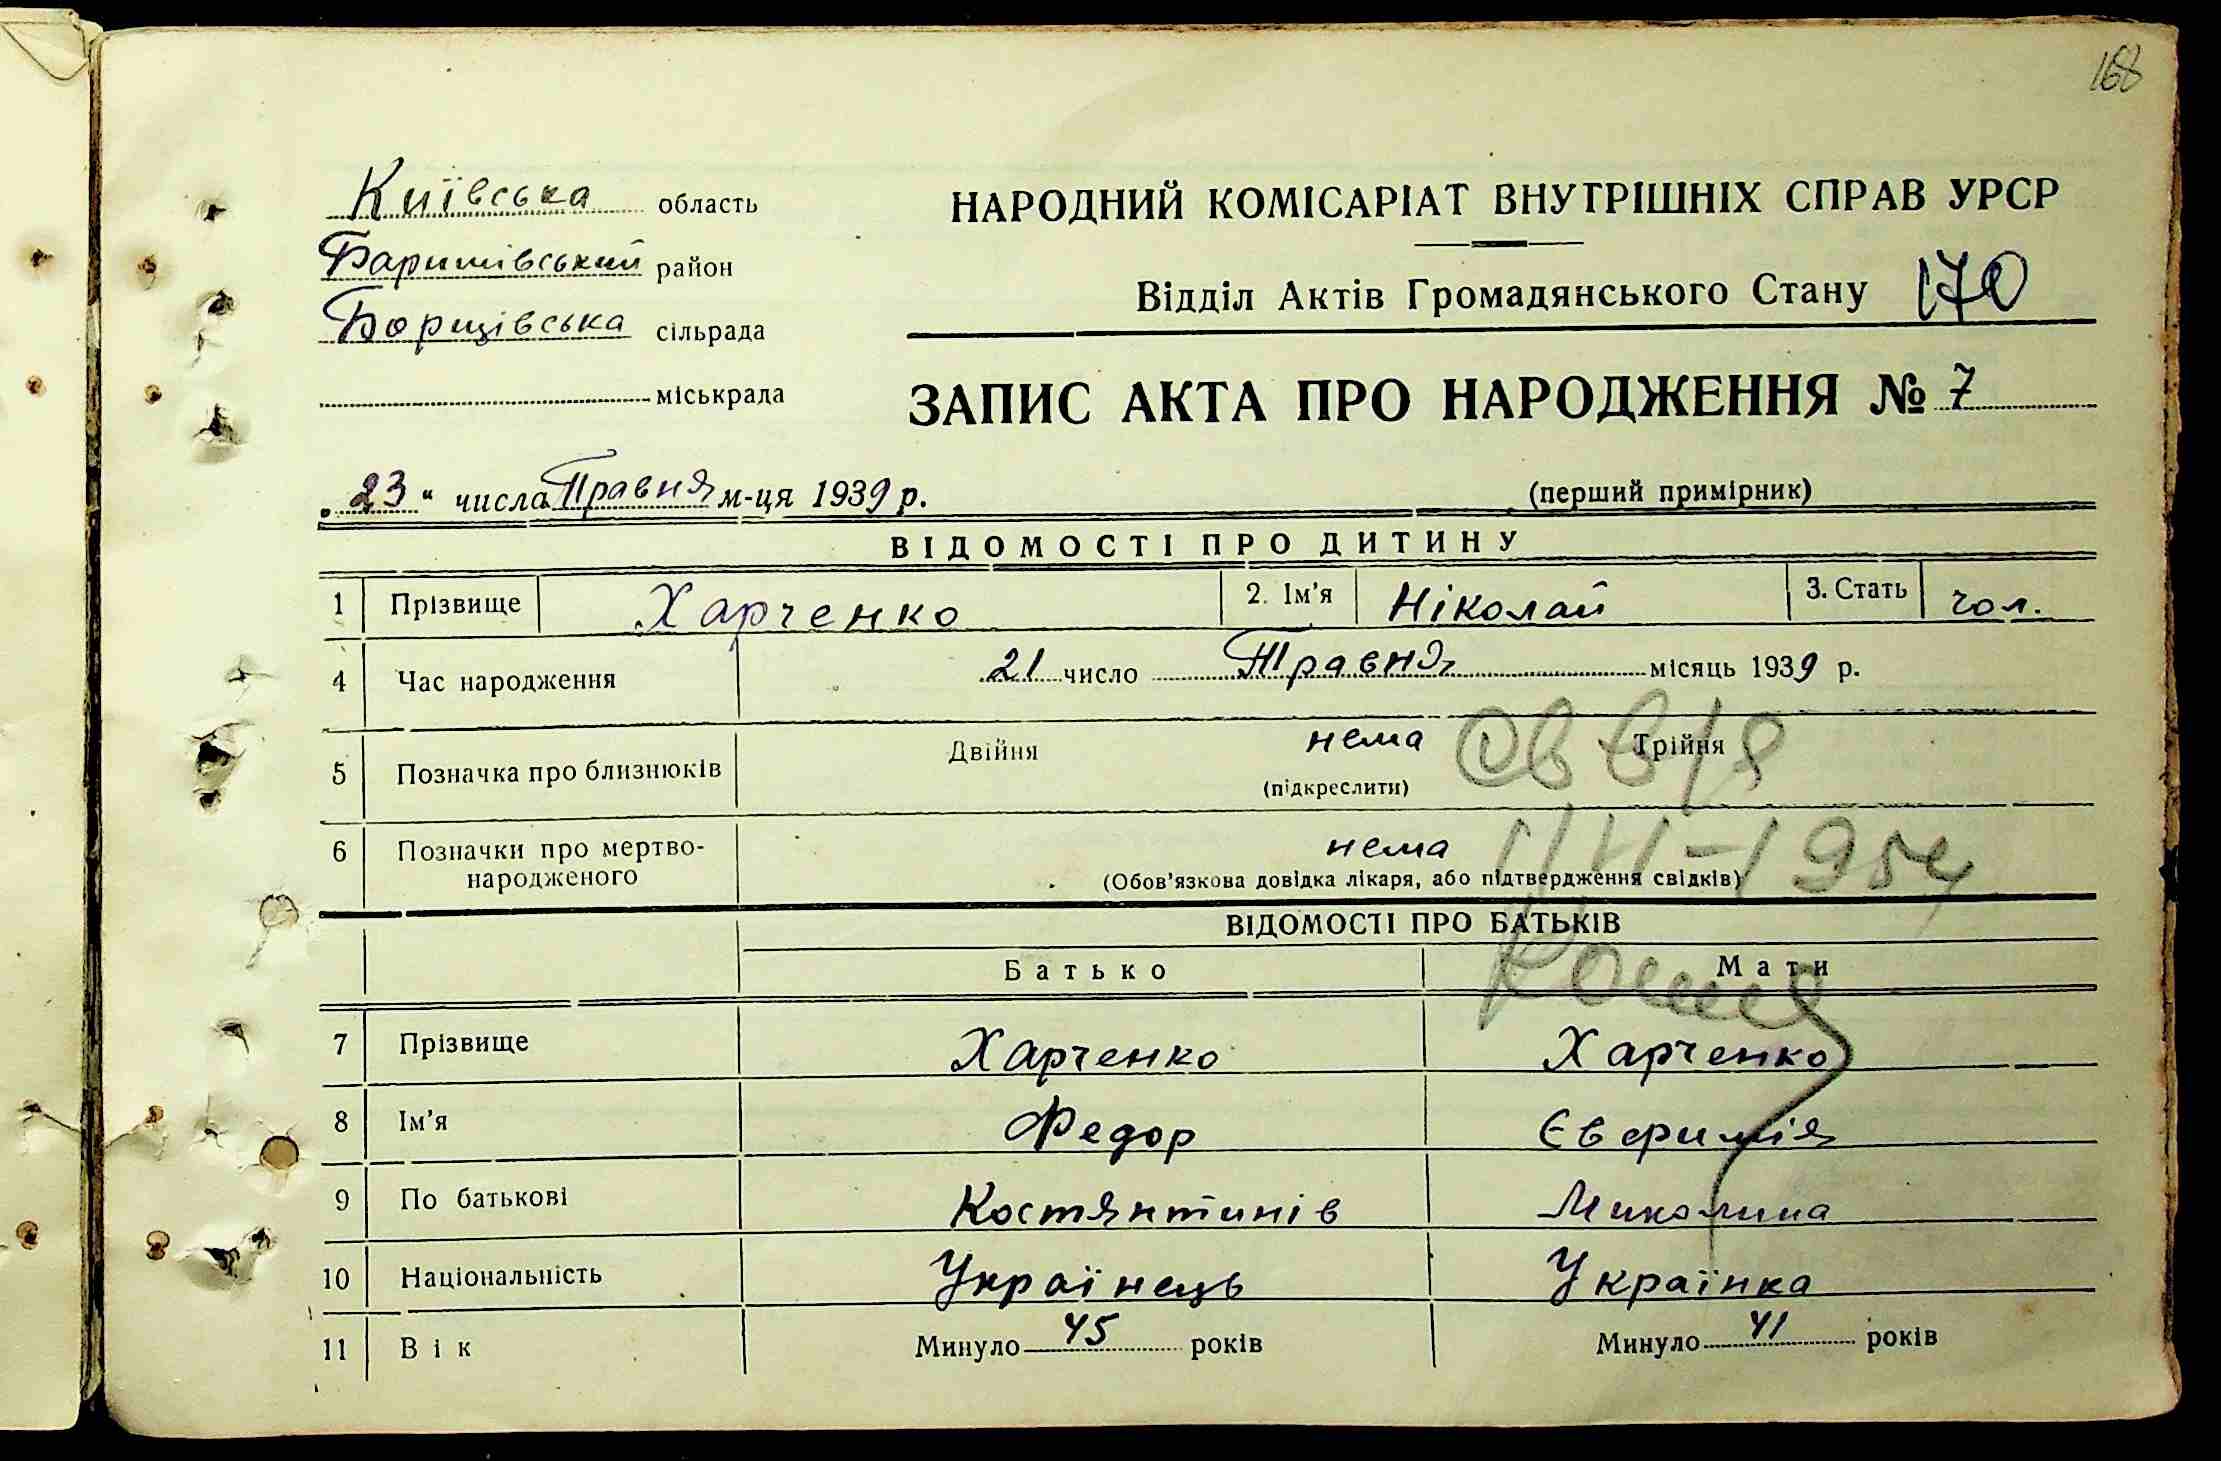 168
Київська область
НАРОДНИЙ КОМІСАРІАТ ВНУТРІШНІХ СПРАВ УРСР
Баришівський район
Відділ Актів Громадянського Стану 170
Борщівська сільрада
міськрада
ЗАПИС АКТА ПРО НАРОДЖЕННЯ № 7
„23“ числа Травня м-ця 1939 р.
(перший примірник)
ВІДОМОСТІ ПРО ДИТИНУ
1 Прізвище Харченко 2. Ім’я Ніколай 3. Стать чол.
4 Час народження 21 число Травня місяць 1939 р.
5 Позначка про близнюків Двійня нема Трійня
(підкреслити)
6 Позначки про мертво-
народженого
нема
(Обов’язкова довідка лікаря, або підтвердження свідків)
1954
ВІДОМОСТІ ПРО БАТЬКІВ
Батько Мати
7 Прізвище Харченко Харченко
8 Ім’я Федор Євфимія
9 По батькові Костянтинів Миколина
10 Національність Українець Українка
11 Вік Минуло 45 років Минуло 41 років